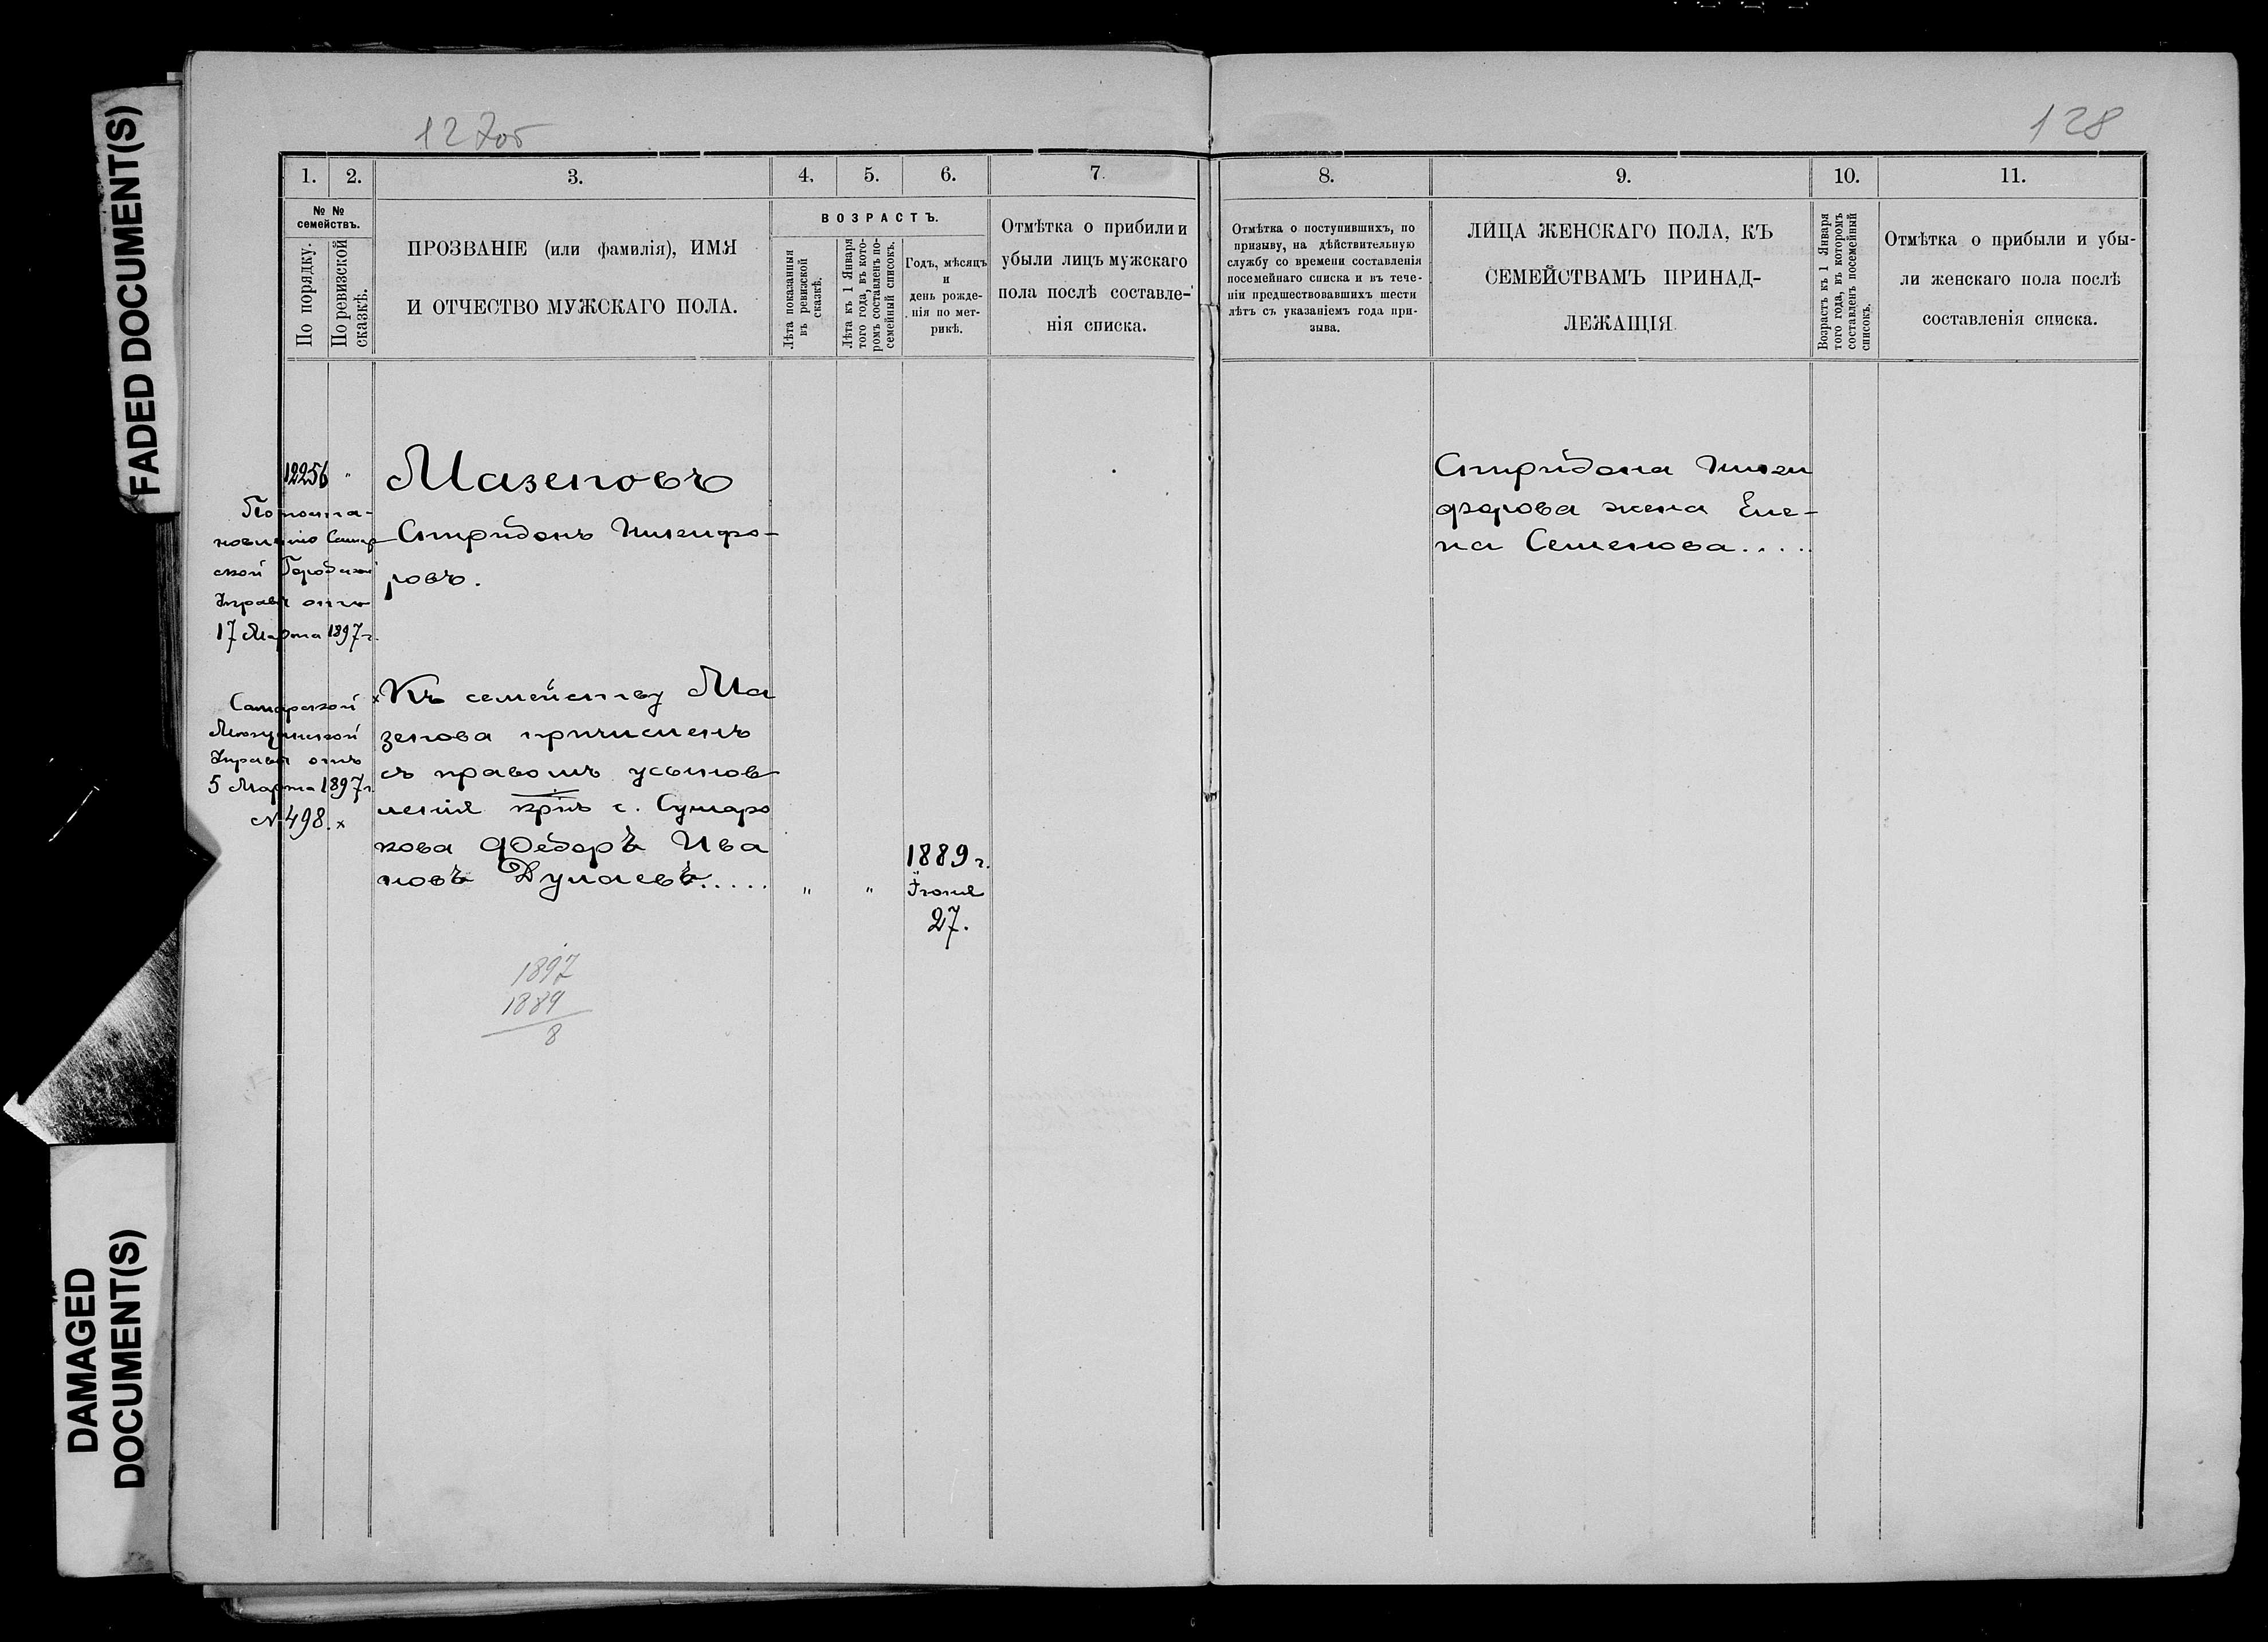 FADED DOCUMENT(S)
DAMAGED
DOCUMENT(S)
127об
128
1.
2.
3.
4.
5.
6.
7.
8.
9.
10.
11.
№ №
семействъ.
По порядку.
По ревизской
сказкѣ.
ПРОЗВАНІЕ (или фамилія), ИМЯ
И ОТЧЕСТВО МУЖСКАГО ПОЛА.
ВОЗРАСТЪ.
Лѣта показанныя
въ ревизской
сказкѣ.
Лѣта къ 1 Января
того года, въ кото-
ромъ составленъ по-
семейный списокъ.
Годъ, мѣсяцъ
и
день рожде-
нія по мет-
рикѣ.
Отмѣтка о прибили и
убыли лицъ мужскаго
пола послѣ составле-
нія списка.
Отмѣтка о поступившихъ, по
призыву, на дѣйствительную
службу со времени составленія
посемейнаго списка и въ тече-
ніи предшествовавшихъ шести
лѣтъ съ указаніемъ года при-
зыва.
ЛИЦА ЖЕНСКАГО ПОЛА, КЪ
СЕМЕЙСТВАМЪ ПРИНАД-
ЛЕЖАЩІЯ
Возрастъ къ 1 Января
того года, въ которомъ
составленъ посемейный
списокъ.
Отмѣтка о прибыли и убы-
ли женскаго пола послѣ
составленія списка.
12256 "
По поста-
новленію Самар
ской Городской
Управы отъ
17 Марта 1897 г.
Мазеповъ
Спиридонъ Никифо-
ровъ.
Самарской
Мѣщанской
Управы отъ
5 Марта 1897 г.
№ 498. х
х Къ семейству Ма
зепова причисленъ
съ правомъ усынов
ленія крнъ с. Сумаро
кова Ѳедоръ Ива
новъ Дулаевъ.....
" "
1889 г.
Іюня
27.
1897
1889
8
Спиридона Ники
форова жена Еле-
на Семенова.....